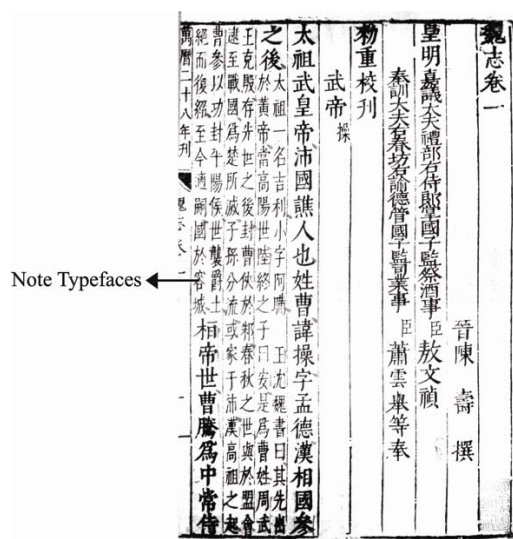 魏志卷一
晉陳壽撰
皇明嘉議大夫禮部右侍郎掌國子監祭酒事臣敖文禎
奉訓大夫右春坊右諭德管國子監司業事臣蕭雲舉等奉
勑重校刊
武帝操
太祖武皇帝沛國譙人也姓曹諱操字孟德漢相國參
之後太祖一名吉利小字阿瞞 王沈魏書曰其先出
於黃帝當高陽世陸終之子曰安是爲曹姓周武
王克殷存先世之後封曹俠於邾春秋之世與於盟會
逮至戰國爲楚所滅子孫分流或家于沛漢高祖之起
曹參以功封平陽侯世襲爵土
絕而復紹至今適嗣國於容城桓帝世曹騰爲中常侍
萬曆二十八年刊 魏志卷一 一
Note Typefaces